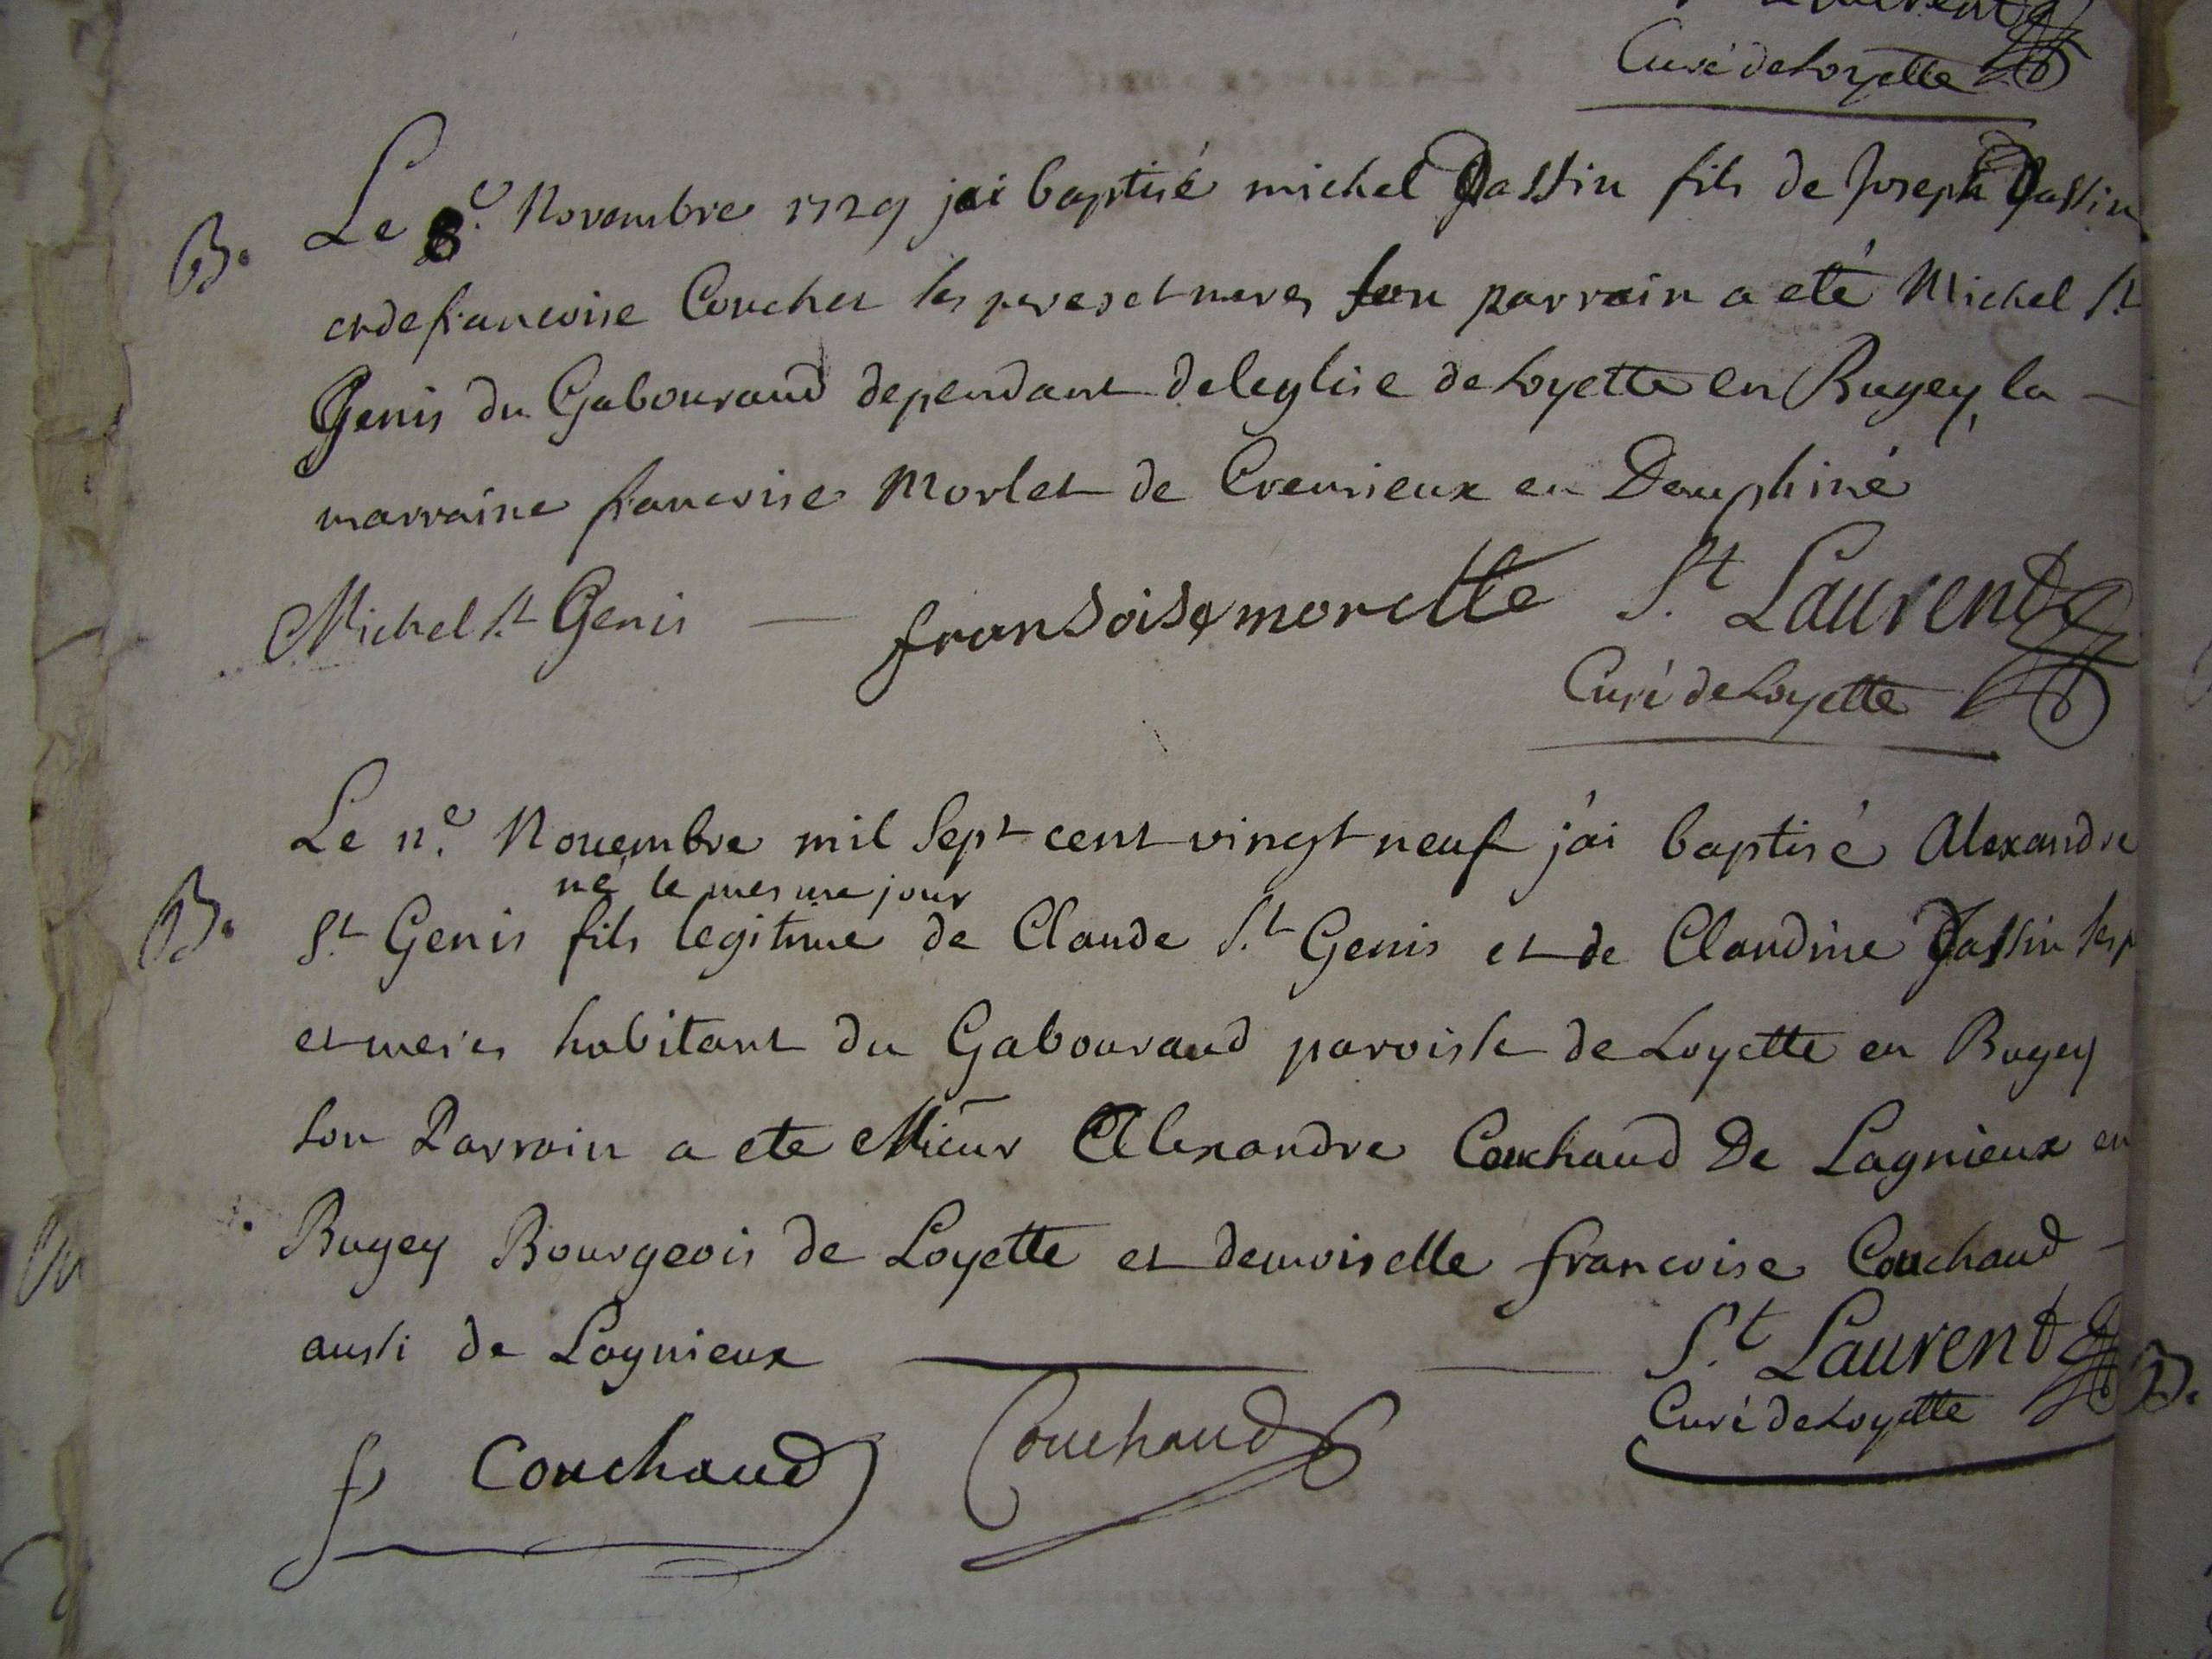 Curé de Loyette
B. Le 8.e Novembre 1729 jai baptisé michel Jassin fils de Joseph Jassin
et de francoise Couchet ses peres et meres son parrain a eté Michel St
Genis du Gabouraud dependant de leglise de Loyette en Bugey, la
marraine francoise Morlet de Cremieux en Dauphiné
Michel St Genis fransoise morelle St Laurent
Curé de Loyette
Le 11.e Novembre mil Sept cent vingt neuf j'ai baptisé Alexandre
né le mesme jour
B. St Genis fils legitime de Claude St Genis et de Claudine Jassin ses p
et meres habitant du Gabouraud paroisse de Loyette en Bugey
son Parrain a ete Alexandre Couchaud De Lagnieux en
Bugey Bourgeois de Loyette et demoiselle francoise Couchaud
aussi de Lagnieux St Laurent
Curé de Loyette
f Couchaud Couchaud